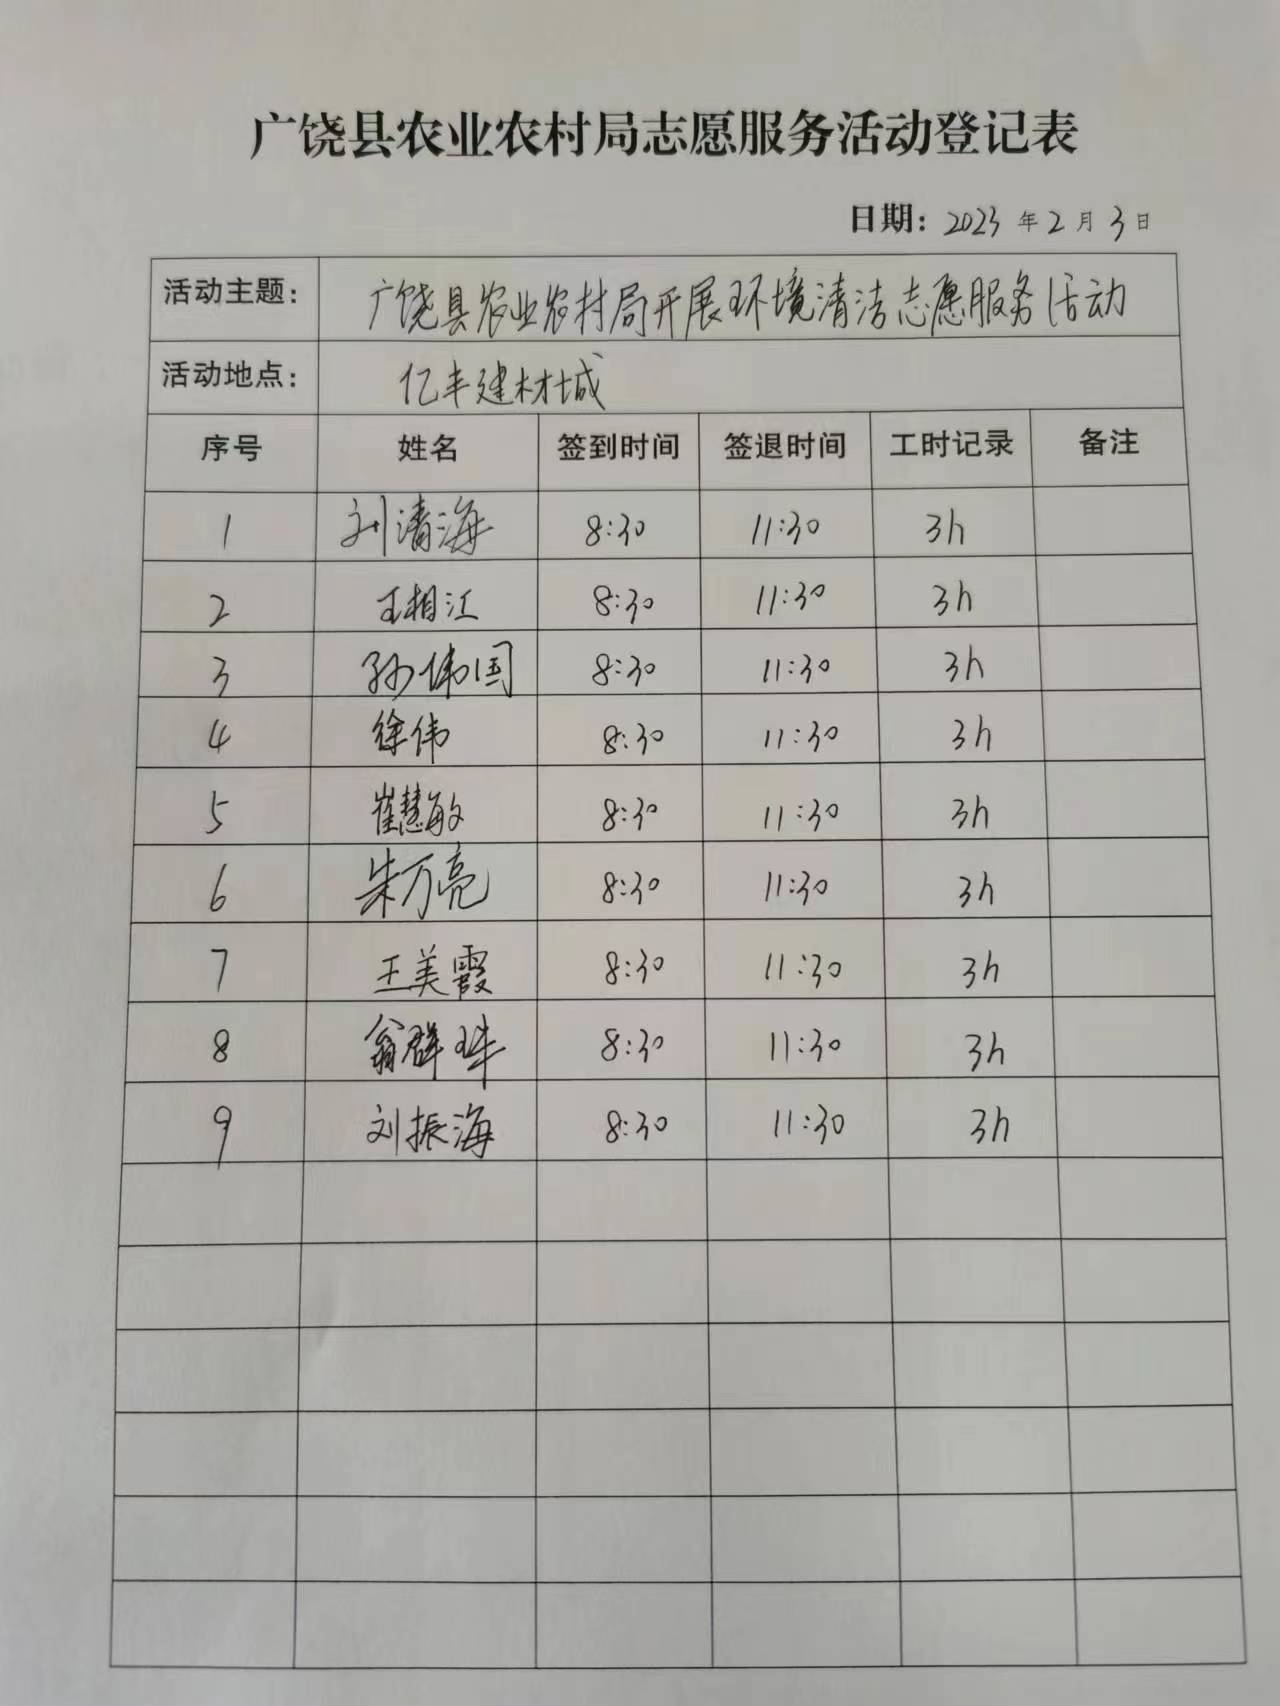 广饶县农业农村局志愿服务活动登记表
日期: 2023 年 2 月 3 日
活动主题: 广饶县农业农村局开展环境清洁志愿服务活动
活动地点: 亿丰建材城
序号 姓名 签到时间 签退时间 工时记录 备注
1 刘清海 8:30 11:30 3h
2 王相江 8:30 11:30 3h
3 孙伟国 8:30 11:30 3h
4 徐伟 8:30 11:30 3h
5 崔慧敏 8:30 11:30 3h
6 朱万亮 8:30 11:30 3h
7 王美霞 8:30 11:30 3h
8 翁群珠 8:30 11:30 3h
9 刘振海 8:30 11:30 3h